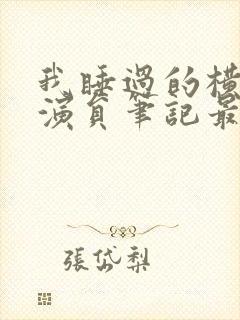 我睡過的橫
演員筆記最
張岱梨